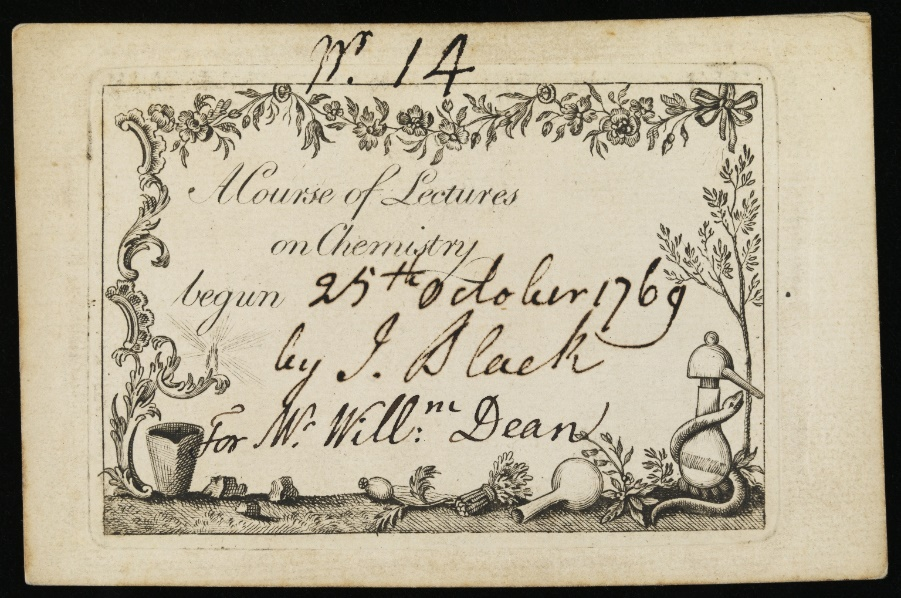 Nr. 14
A Course of Lectures
on Chemistry
begun 25th October 1769
by J. Black
For Mr. Will:m Dean